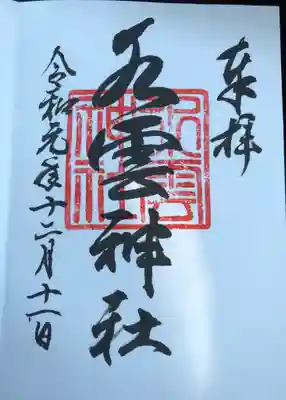 奉拝
八雲神社
令和元年十二月十一日